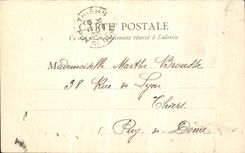 THIERS
CARTE POSTALE
Ce côté est exclusivement réservé à l'adresse
Mademoiselle Marthe Brousse
38 Rue de Lyon
Thiers
(Puy de Dôme